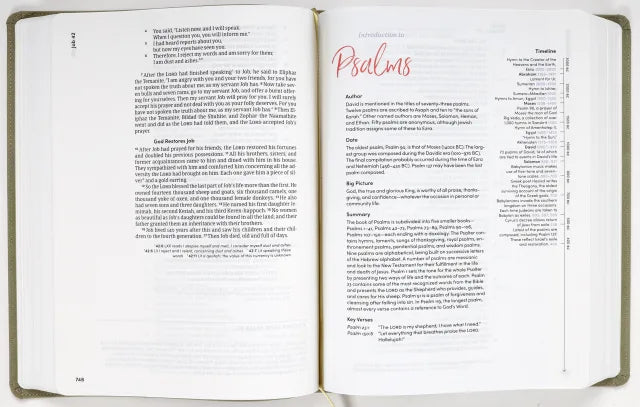 Job 42
4 You said, "Listen now and I will speak.
When I question you, you will inform me."
5 I had heard reports about you,
but now my eyes have seen you.
6 Therefore, I reject my words and am sorry for them;
I am dust and ashes.
7 After the LORD had finished speaking to Job, he said to Eliphaz
the Temanite, "I am angry with you and your two friends, for you have
not spoken the truth about me, as my servant Job has. 8 Now take sev-
en bulls and seven rams, go to my servant Job, and offer a burnt offer-
ing for yourselves. Then my servant Job will pray for you. I will surely
accept his prayer and not deal with you as your folly deserves. For you
have not spoken the truth about me, as my servant Job has." 9 Then Eli-
phaz the Temanite, Bildad the Shuhite, and Zophar the Naamathite
went and did as the LORD had told them, and the LORD accepted Job's
prayer.
God Restores Job
10 After Job had prayed for his friends, the LORD restored his fortunes
and doubled his previous possessions. 11 All his brothers, sisters, and
former acquaintances came to him and dined with him in his house.
They sympathized with him and comforted him concerning all the ad-
versity the LORD had brought on him. Each one gave him a piece of sil-
ver and a gold earring.
12 So the LORD blessed the last part of Job's life more than the first. He
owned fourteen thousand sheep and goats, six thousand camels, one
thousand yoke of oxen, and one thousand female donkeys. 13 He also
had seven sons and three daughters. 14 He named his first daughter Je-
mimah, his second Keziah, and his third Keren-happuch. 15 No women
as beautiful as Job's daughters could be found in all the land, and their
father granted them an inheritance with their brothers.
16 Job lived 140 years after this and saw his children and their chil-
dren to the fourth generation. 17 Then Job died, old and full of days.
748
Introduction to
Psalms
Author
David is mentioned in the titles of seventy-three psalms.
Twelve psalms are ascribed to Asaph and ten to "the sons of
Korah." Other named authors are Moses, Solomon, Heman,
and Ethan. Fifty psalms are anonymous, although Jewish
tradition assigns some of these to Ezra.
Date
The oldest psalm, Psalm 90, is that of Moses (1400s BC). The
large group was composed during the Davidic era (1010–970 BC).
The final compilation probably occurred during the time of Ezra
and Nehemiah (450–430 BC). Psalm 137 may have been the last
psalm composed.
Big Picture
God, the true and glorious King, is worthy of all praise, thanks-
giving, and confidence—whatever the occasion in personal or
community life.
Summary
The book of Psalms is subdivided into five smaller books—
Psalms 1–41, Psalms 42–72, Psalms 73–89, Psalms 90–106,
Psalms 107–150—each ending with a doxology. The Psalter con-
tains hymns, laments, songs of thanksgiving, royal psalms, en-
thronement psalms, penitential psalms, and wisdom psalms.
Nine psalms are alphabetical, being built on successive letters
of the Hebrew alphabet. A number of psalms are messianic
and look to the New Testament for their fulfillment in the life
and death of Jesus. Psalm 1 sets the tone for the whole Psalter
by presenting two ways of life and the outcome of each. Psalm
23 contains some of the most recognized words from the Bible
and presents the LORD as the Shepherd who provides, guides,
and cares for his sheep. Psalm 51 is a psalm of forgiveness and
cleansing after falling into sin. In Psalm 119, the longest psalm,
almost every verse contains a reference to God's Word.
Key Verses
Psalm 23:1 "The LORD is my shepherd; I have what I need."
Psalm 150:6 "Let everything that breathes praise the LORD.
Hallelujah!"
Timeline
Hymn to the Creator of the
Heavens and the Earth,
Abraham
Lament for Ur,
Hymn to Ishtar,
Moses
Psalm 90, a prayer of
Moses the man of God
Hymn of Amenhotep II,
Egypt
"Hymn to the Sun"
David
73 psalms of David, 14 of which
are tied to events in David's life
Solomon